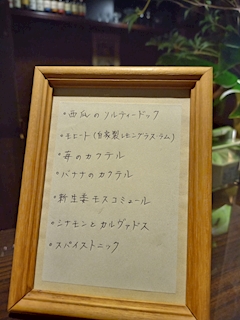 • 西瓜のソルティードッグ
• モヒート (自家製レモングラス・ラム)
• 苺のカクテル
• バナナのカクテル
• 新生姜モスコミュール
• シナモンとカルヴァドス
• スパイストニック